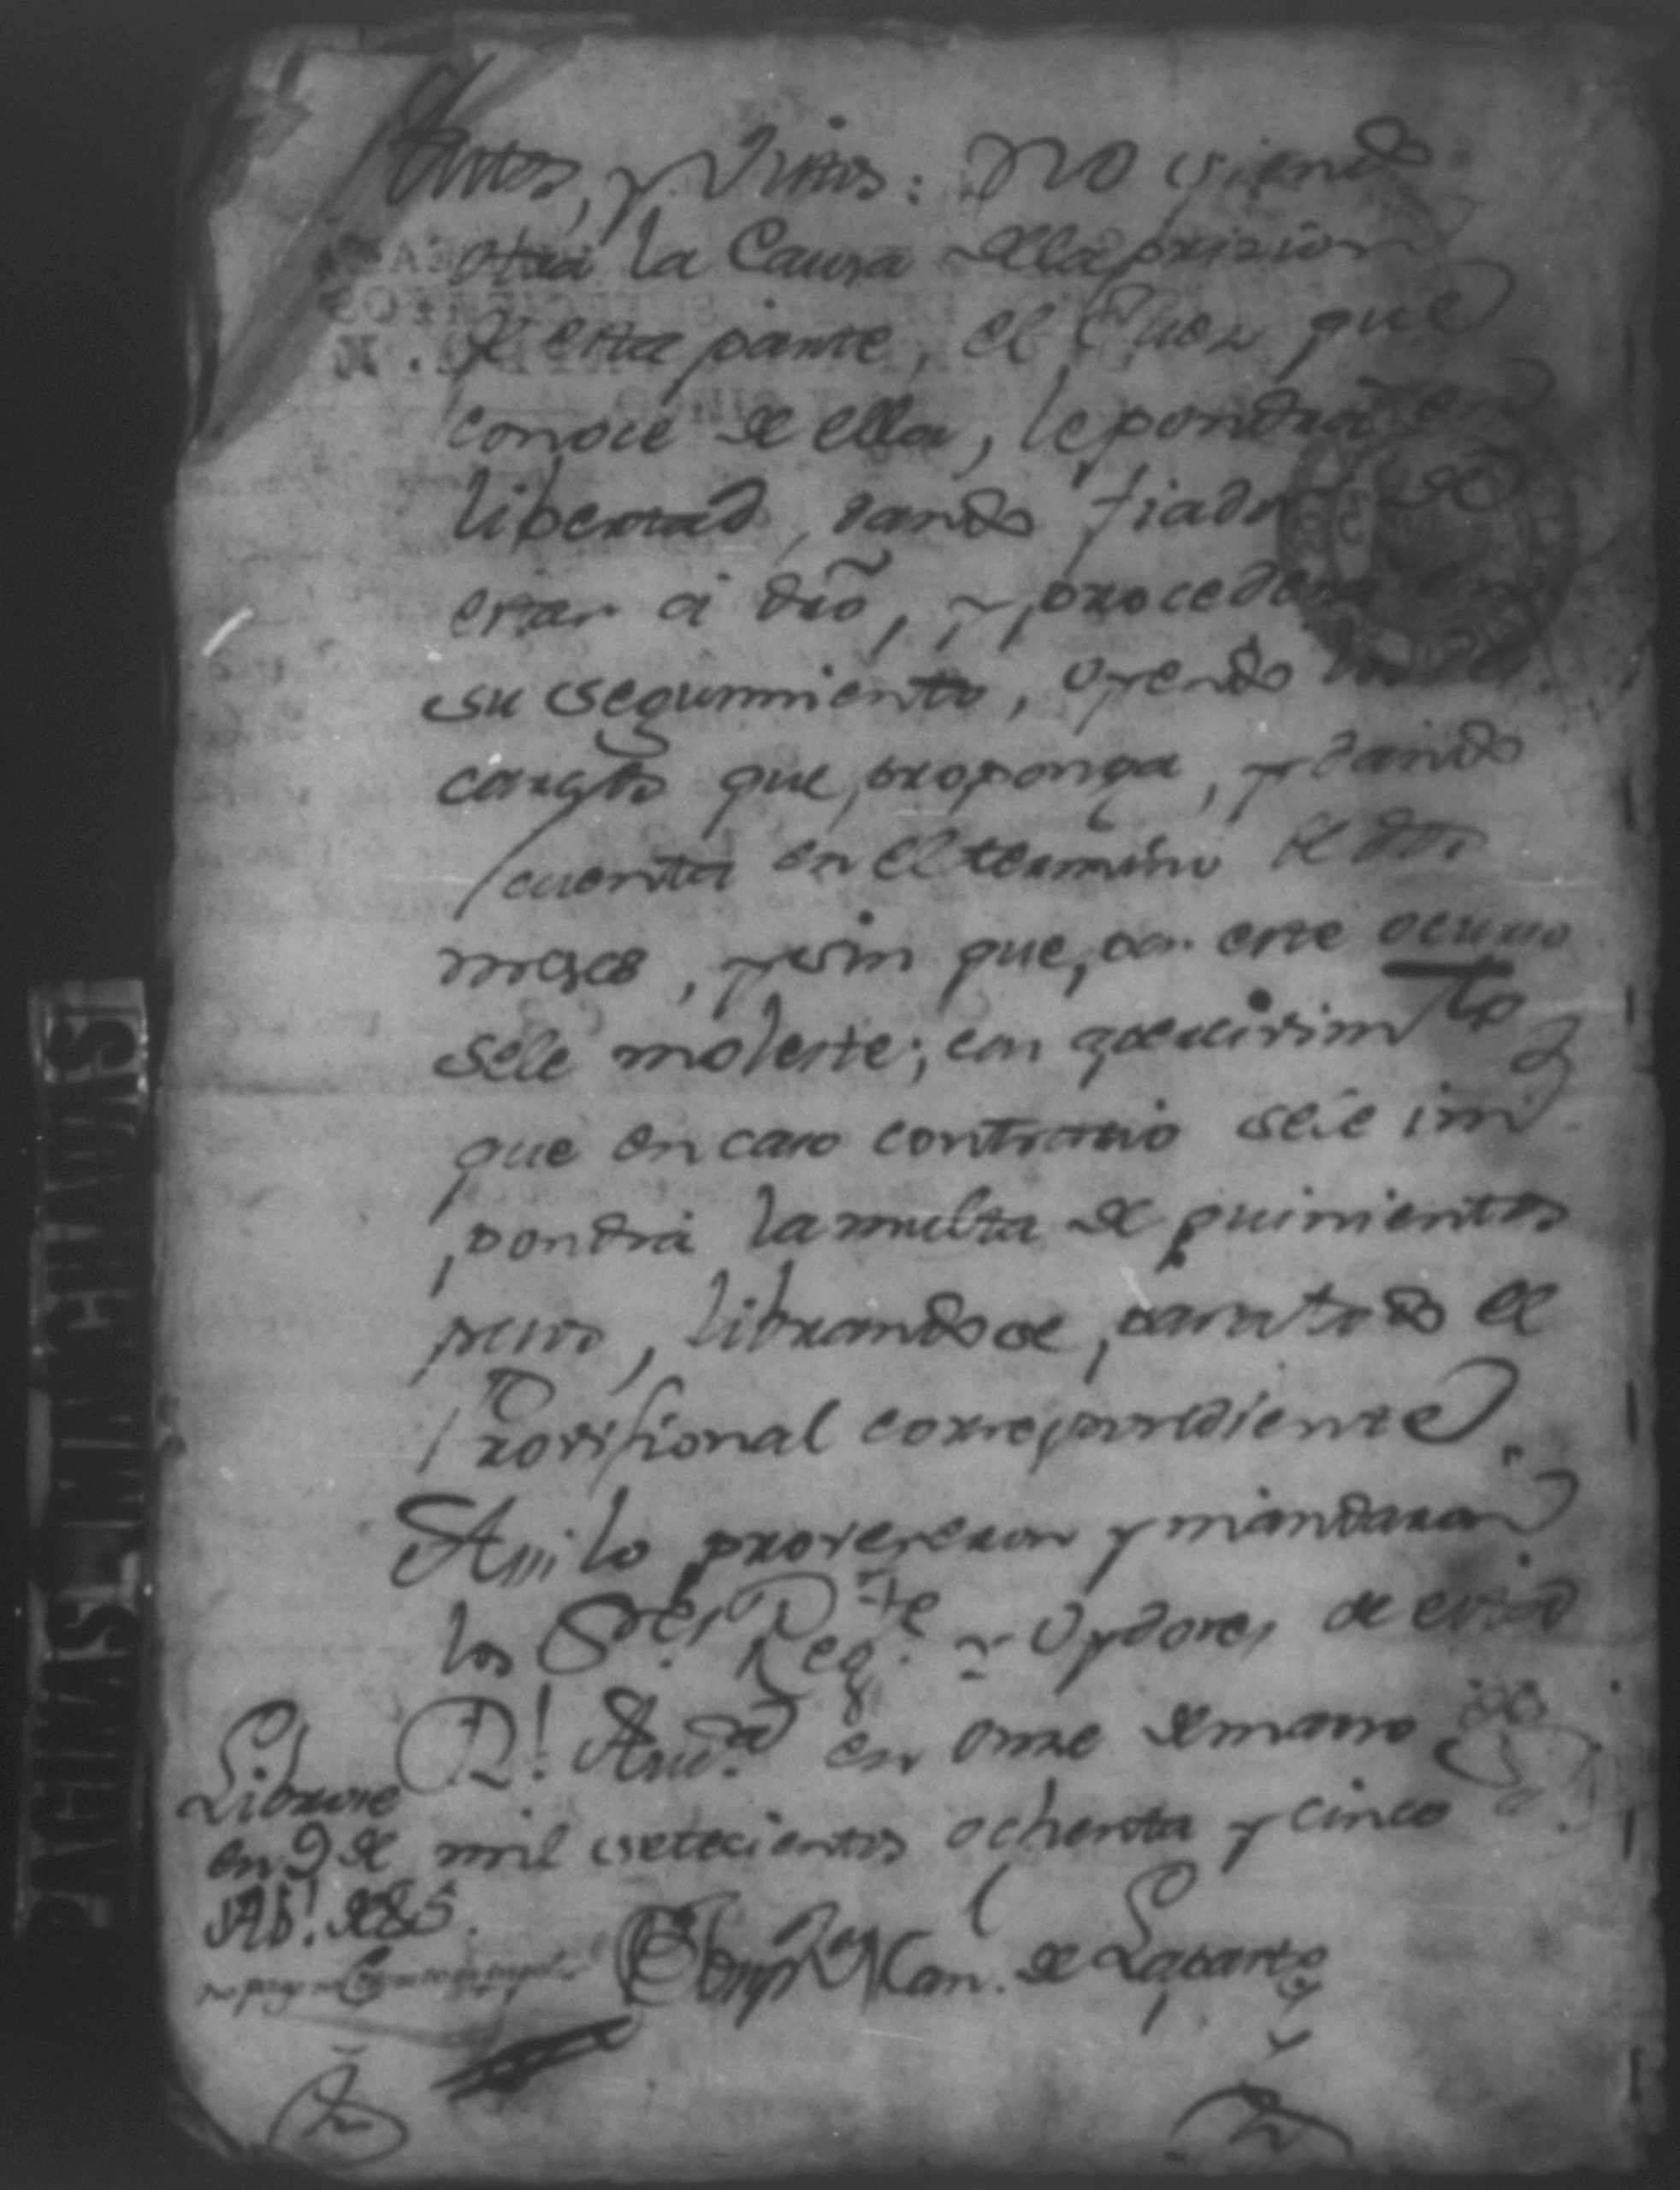 Autos, y Vistos: No siendo
otra la Causa dela prision
de esta parte, el Juez que
conoce de ella, le pondrá en
libertad, dando fiador de
estar á dro, y procederá en
su seguimiento, oyendo los des
cargos que proponga, y dando
cuenta en el termino de dos
meses, y sin que por este ocurso
sele moleste; con apercivim.to de
que en caso contrario sele im
pondrá la multa de quinientos
pesos, librandose para todo el
Provisional correspondiente.
Assi lo proveyeron y mandaron
los S.res Reg.te y Oydores de esta
R.l Aud.a en onze de marzo
de mil setecientos ochenta y cinco
Librose
en 9 de
Ab.l de 85.
Man. de Lazarte
PAGINAS MANCHADAS